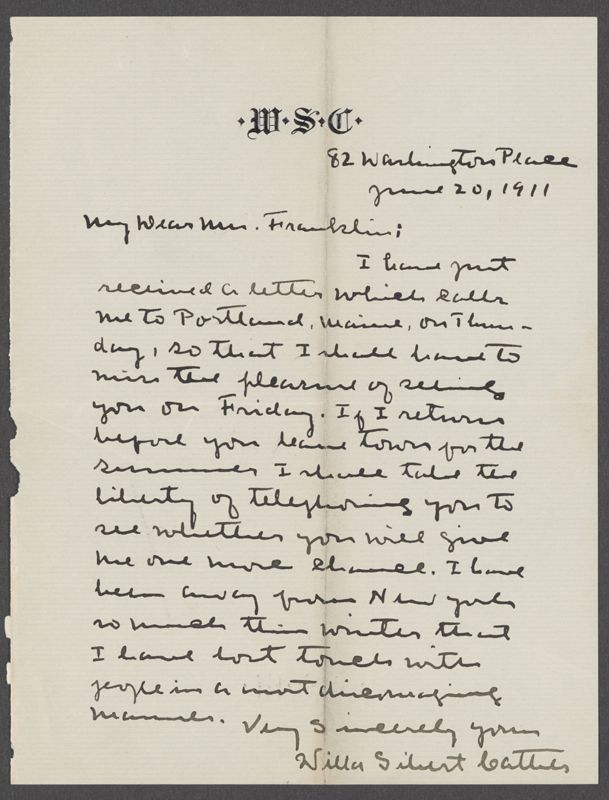 ·W·S·C·
82 Washington Place
June 20, 1911
My Dear Mrs. Franklin;
I have just
received a letter which calls
me to Portland, Maine, on Thurs-
day, so that I shall have to
miss the pleasure of seeing
you on Friday. If I return
before you leave town for the
summer I shall take the
liberty of telephoning you to
see whether you will give
me one more chance. I have
been away from New York
so much this winter that
I have lost touch with
people in a most discouraging
manner.
Very Sincerely yours
Willa Sibert Cather